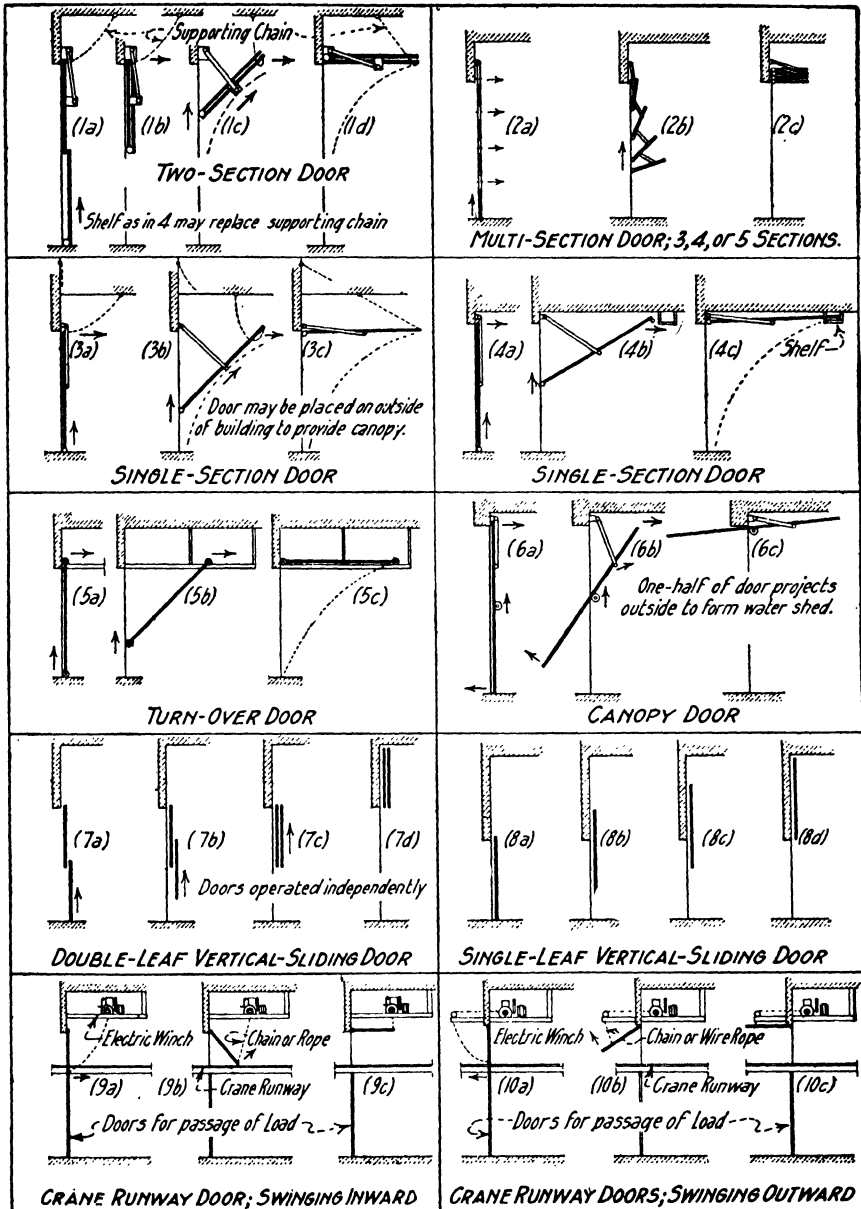 Supporting Chain
(1a)
(1b)
(1c)
(1d)
TWO-SECTION DOOR
Shelf as in 4 may replace supporting chain
(2a)
(2b)
(2c)
MULTI-SECTION DOOR; 3,4, or 5 SECTIONS.
(3a)
(3b)
(3c)
Door may be placed on outside
of building to provide canopy.
SINGLE-SECTION DOOR
(4a)
(4b)
(4c)
Shelf
SINGLE-SECTION DOOR
(5a)
(5b)
(5c)
TURN-OVER DOOR
(6a)
(6b)
(6c)
One-half of door projects
outside to form water shed.
CANOPY DOOR
(7a)
(7b)
(7c)
(7d)
Doors operated independently
DOUBLE-LEAF VERTICAL-SLIDING DOOR
(8a)
(8b)
(8c)
(8d)
SINGLE-LEAF VERTICAL-SLIDING DOOR
Electric Winch
Chain or Rope
(9a)
(9b)
Crane Runway
(9c)
Doors for passage of Load
CRANE RUNWAY DOOR; SWINGING INWARD
Electric Winch
Chain or Wire Rope
(10a)
(10b)
Crane Runway
(10c)
Doors for passage of Load
CRANE RUNWAY DOORS; SWINGING OUTWARD